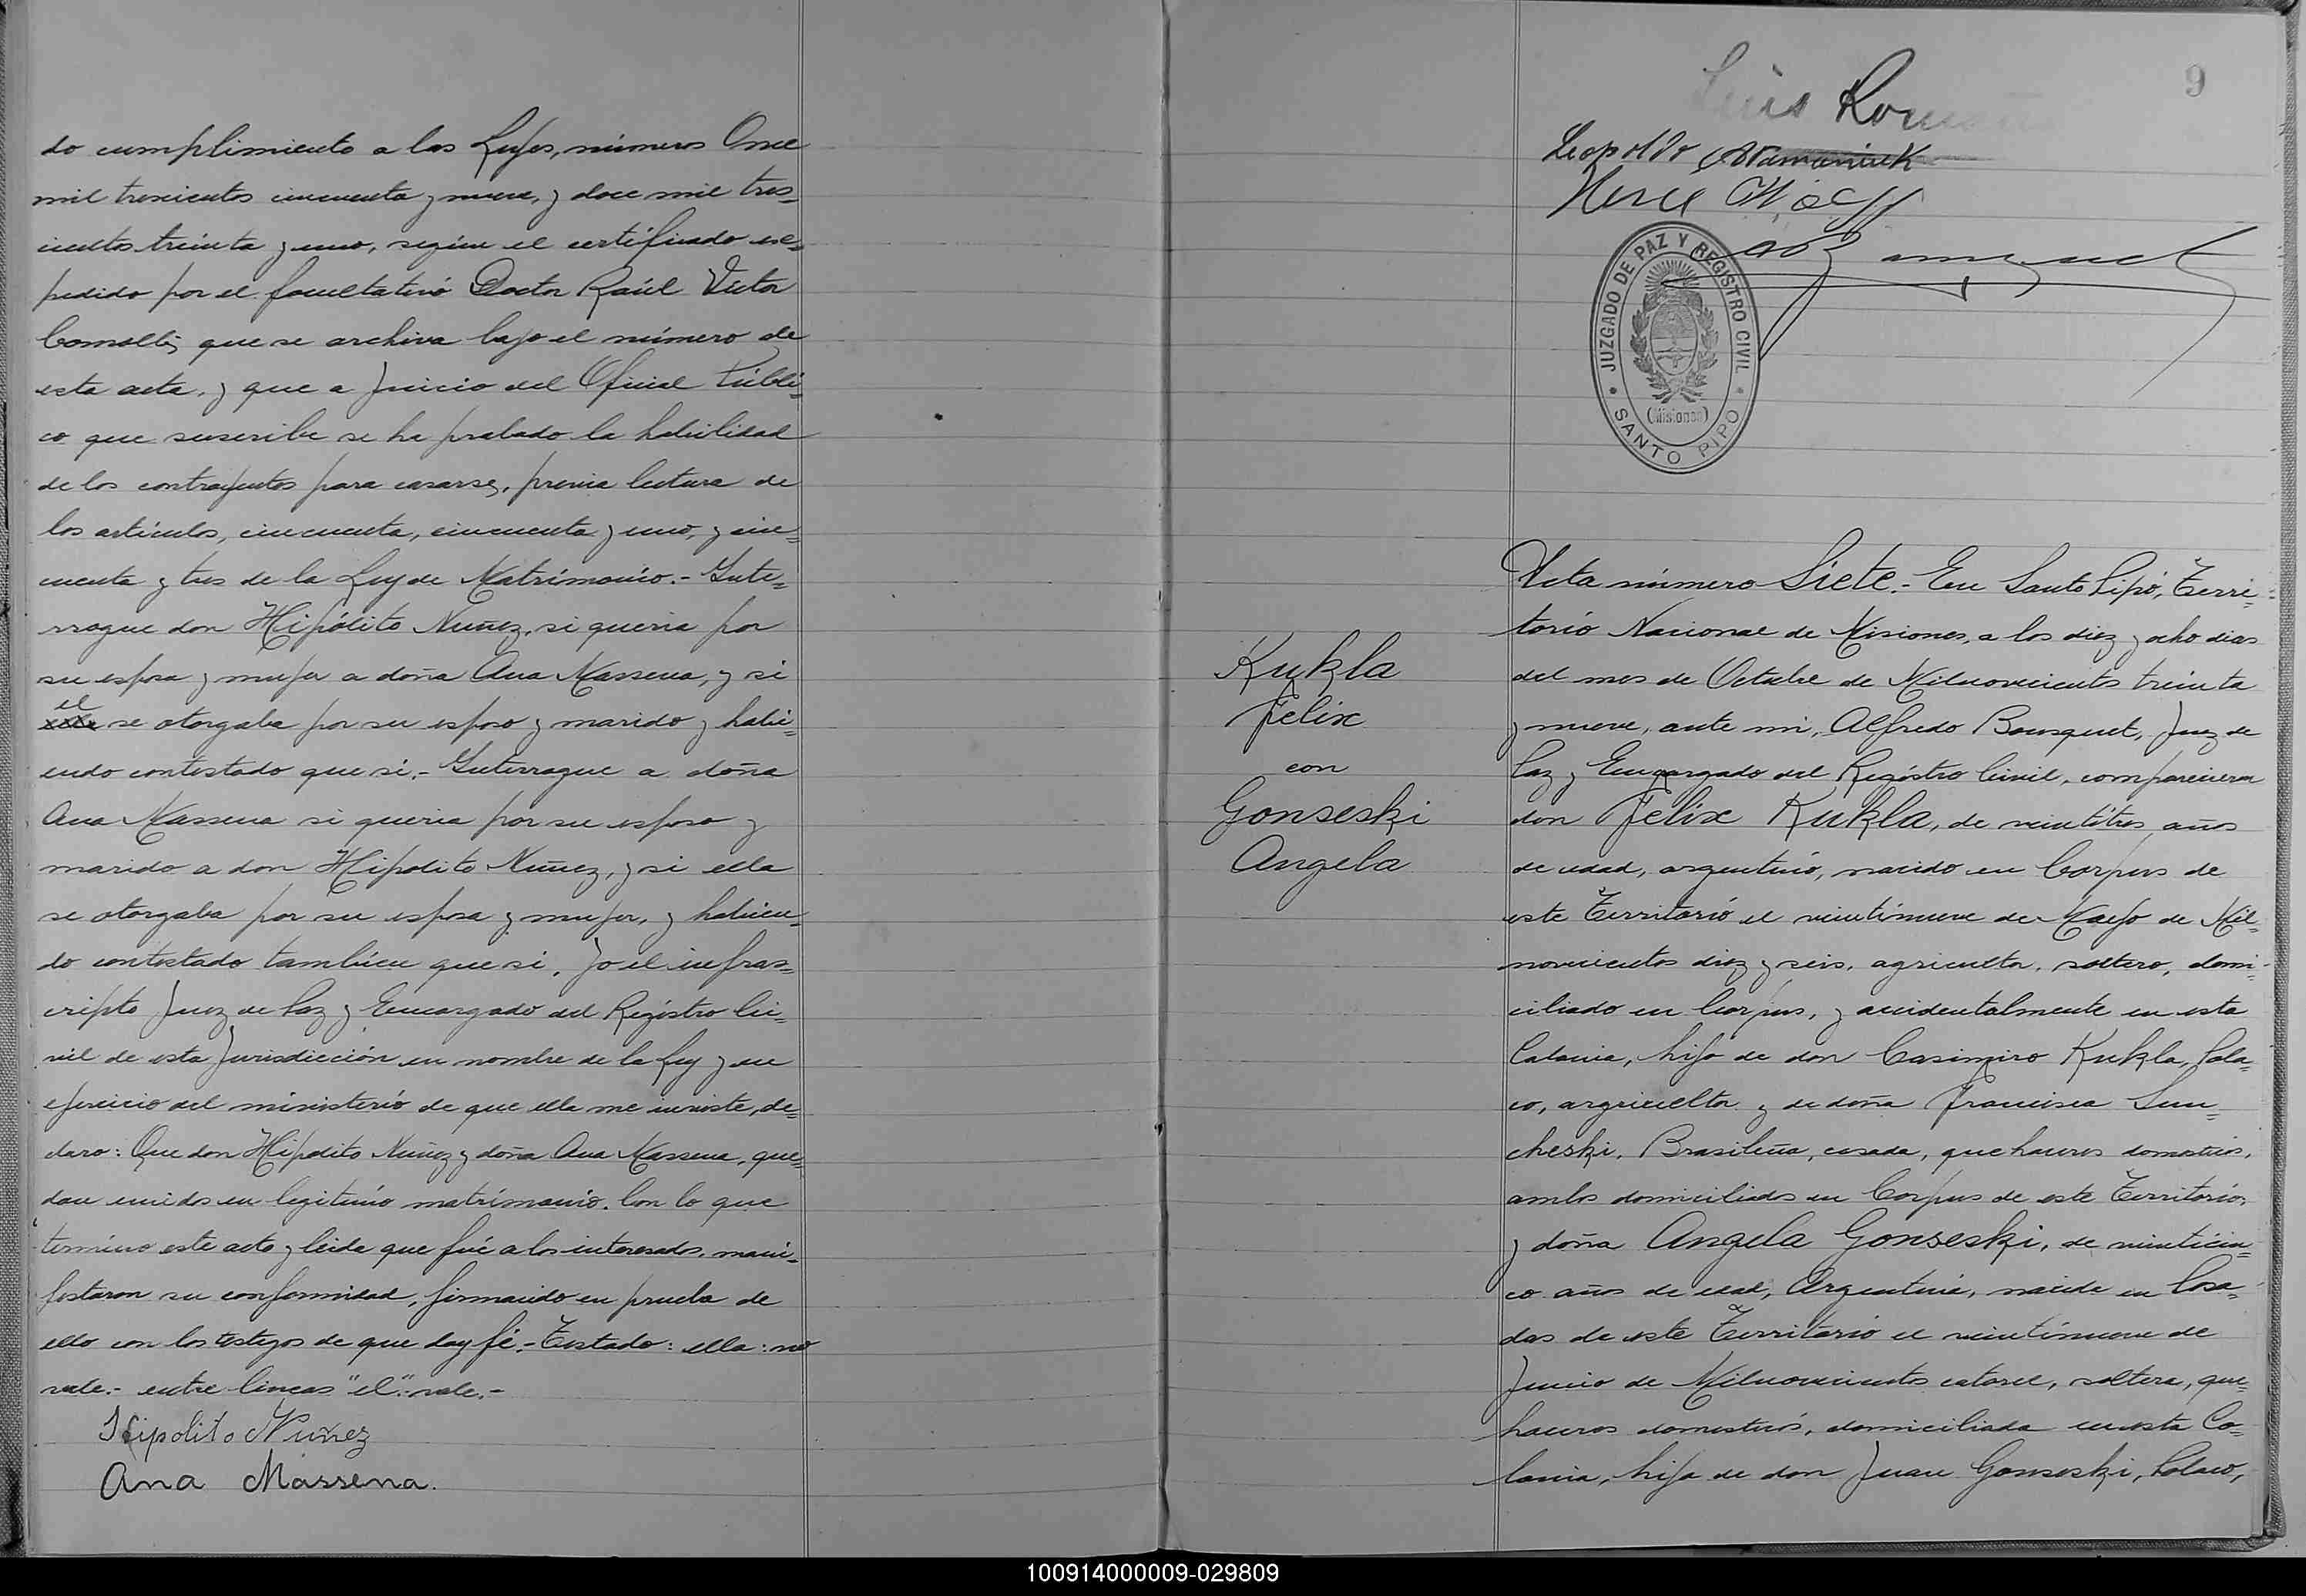 do cumplimiento a las Leyes, números Once
mil trescientos cincuenta y nueve, y doce mil tres=
cientos treinta y uno, según el certificado ex=
pedido por el facultativo Doctor Raúl Victor
que se archiva bajo el número de
esta acta, y que a Juicio del Oficial Públi=
co que suscribe se ha probado la habilidad
de los contrayentes para casarse, previa lectura de
los artículos, cincuenta, cincuenta y uno, y cin=
cuenta y tres de la Ley de Matrimonio.- Inte=
rrogue don Hipólito Nuñez, si queria por
su esposa y mujer a doña Ana Massena, y si
el
se otorgaba por su esposo y marido y habi=
endo contestado que si.- Interrogue a doña
Ana Massena si queria por su esposo y
marido a don Hipolito Nuñez, y si ella
se otorgaba por su esposa y mujer, y habien=
do contestado tambien que si, Yo el infras=
cripto Juez de Paz y Encargado del Registro Ci=
vil de esta Jurisdicción en nombre de la Ley y en
ejercicio del ministerio de que ella me inviste, de=
claro: Que don Hipolito Nuñez y doña Ana Massena, que=
dan unidos en legitimo matrimonio. Con lo que
termino este acto y leida que fué a los interesados, mani=
festaron su conformidad, firmando en prueba de
ello con los testigos de que doy fé.- Testado: ella: no
vale.- entre lineas "el": vale.-
Hipolito Nuñez
Ana Massena.
9
Luis
Leopoldo
JUZGADO DE PAZ Y REGISTRO CIVIL
(Misiones)
SANTO PIPO
Kukla
Felix
con
Gonseski
Angela
Acta número Siete.- En Santo Pipó, Terri=
torio Nacional de Misiones, a los diez y ocho dias
del mes de Octubre de Milnovecientos treinta
y nueve, ante mi, Alfredo Bousquet, Juez de
Paz y Encargado del Registro Civil, comparecieron
don Felix Kukla, de veintitres años
de edad, argentino, nacido en Corpus de
este Territorio el veintinueve de Mayo de Mil=
novecientos diez y seis, agricultor, soltero, domi=
ciliado en Corpus, y accidentalmente en esta
Colonia, hijo de don Casimiro Kukla, Pola=
co, argricultor y de doña Francisca Sun=
cheski, Brasileña, casada, quehaceres domesticos,
ambos domiciliados en Corpus de este Territorio,
y doña Angela Gonseski, de veinticin=
co años de edad, Argentina, nacida en Posa=
das de este Territorio el veintinueve de
Junio de Milnovecientos catorce, soltera, que=
haceres domesticos, domiciliada en esta Co=
lonia, hija de don Juan Gonseski, Polaco,
100914000009-029809